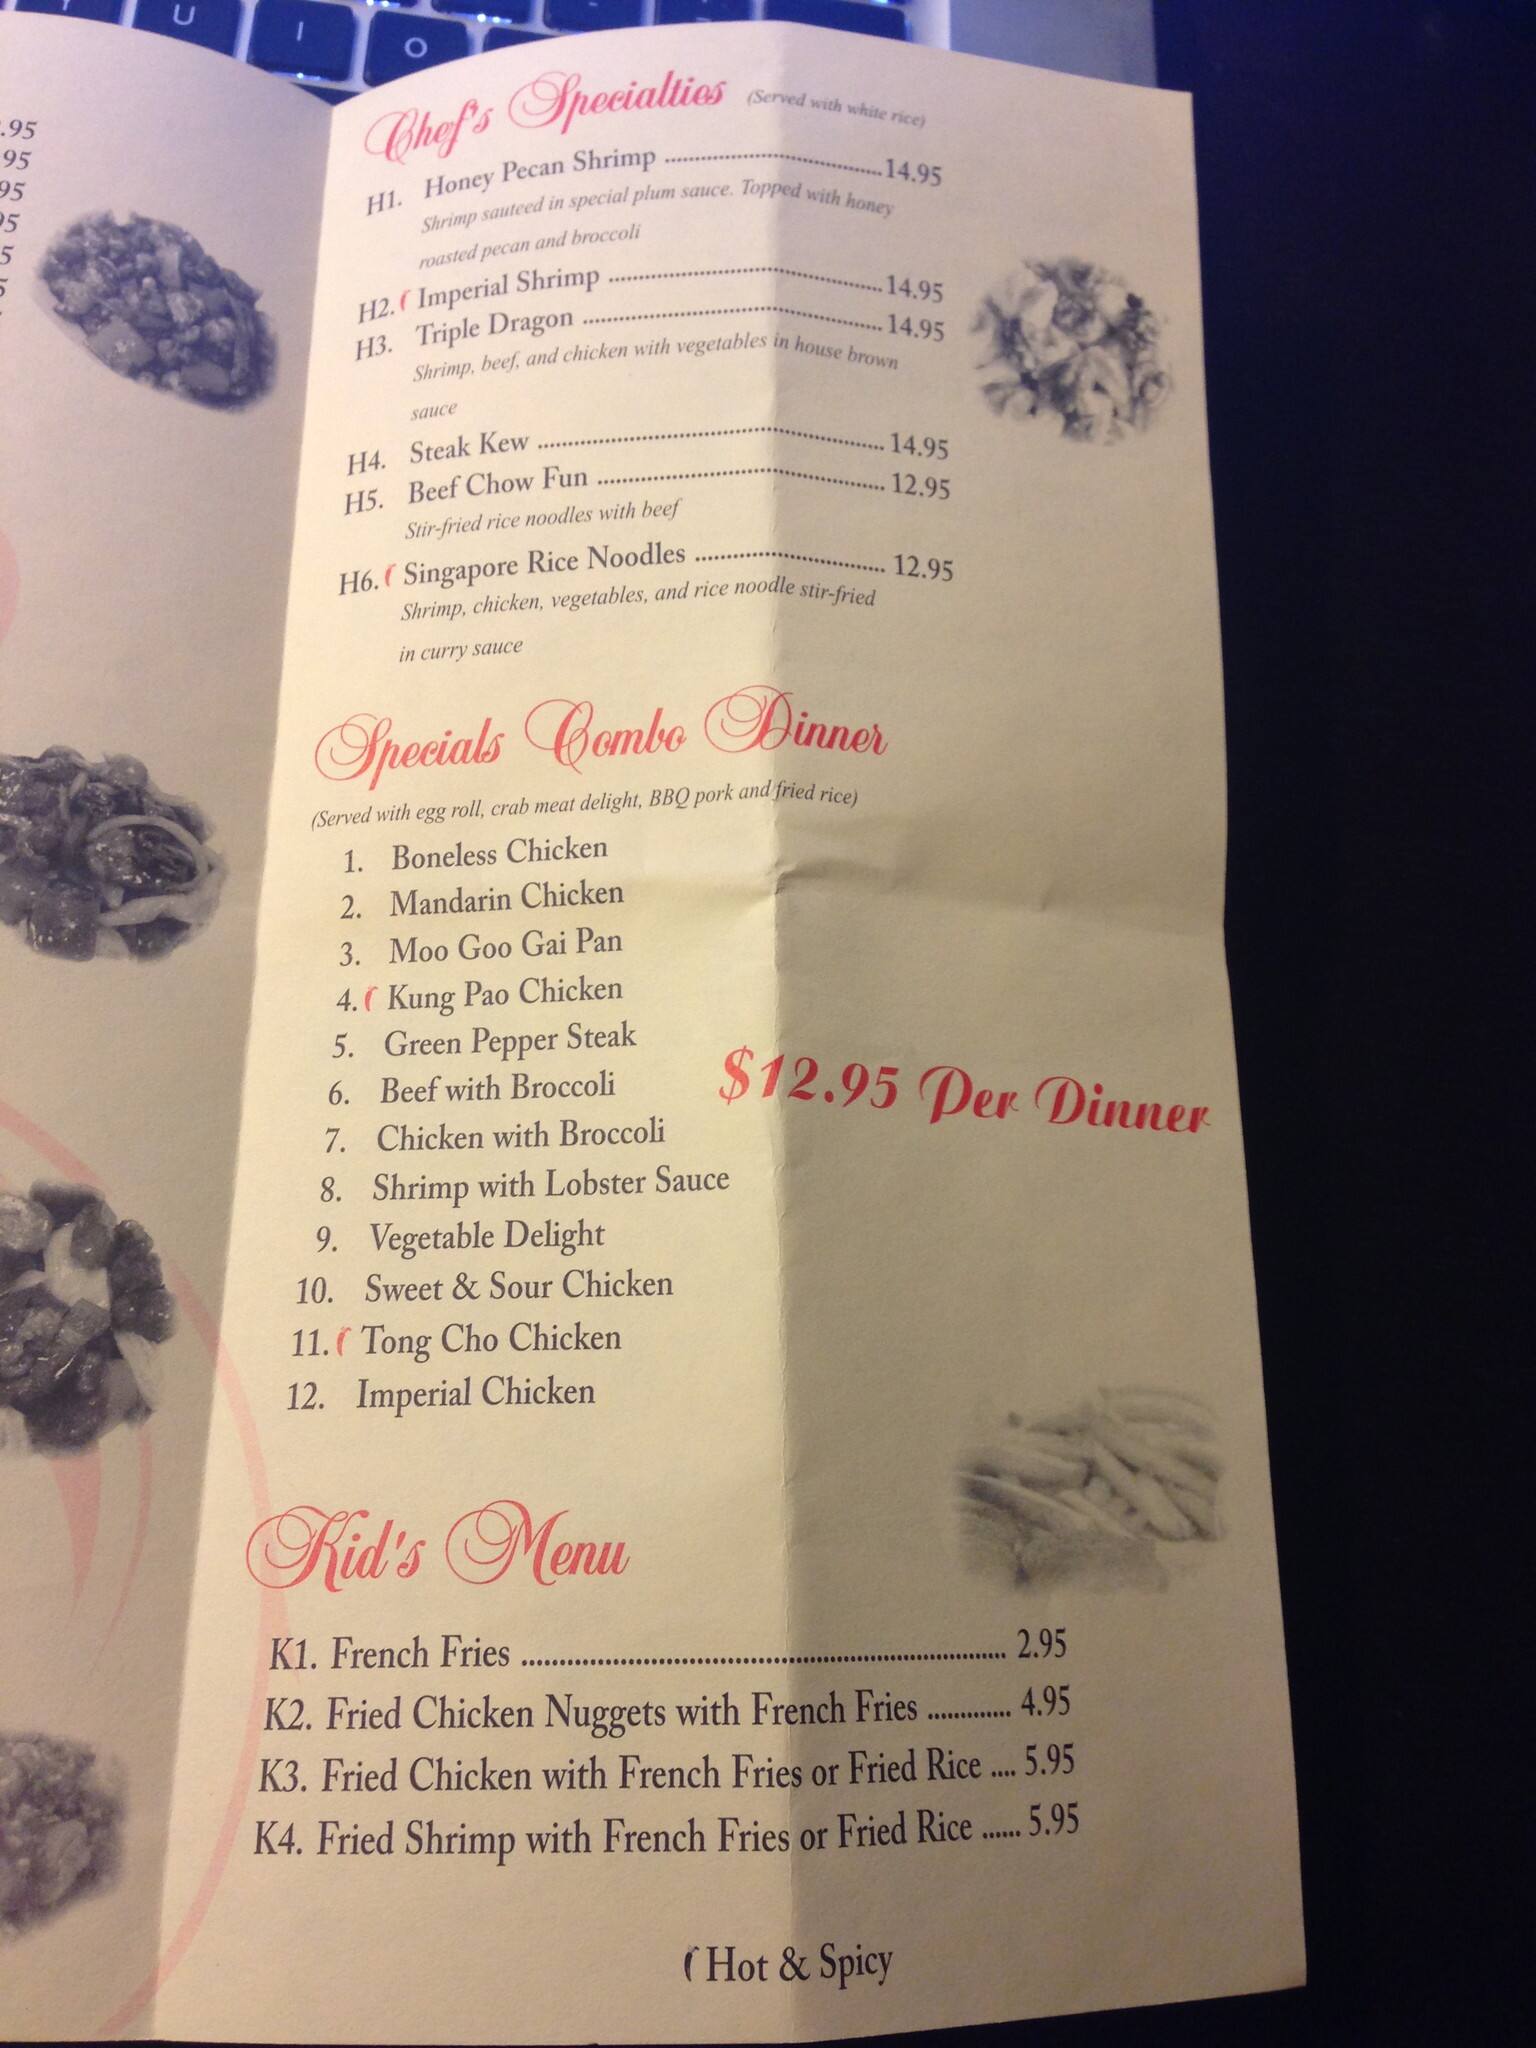 U I O
.95
95
95
95
5
5
Chef's Specialties (Served with white rice)
H1. Honey Pecan Shrimp ........................................ 14.95
Shrimp sauteed in special plum sauce. Topped with honey
roasted pecan and broccoli
H2. Imperial Shrimp ........................................ 14.95
H3. Triple Dragon ........................................ 14.95
Shrimp, beef, and chicken with vegetables in house brown
sauce
H4. Steak Kew ........................................ 14.95
H5. Beef Chow Fun ........................................ 12.95
Stir-fried rice noodles with beef
H6. Singapore Rice Noodles ............................ 12.95
Shrimp, chicken, vegetables, and rice noodle stir-fried
in curry sauce
Specials Combo Dinner
(Served with egg roll, crab meat delight, BBQ pork and fried rice)
1. Boneless Chicken
2. Mandarin Chicken
3. Moo Goo Gai Pan
4. Kung Pao Chicken
5. Green Pepper Steak
6. Beef with Broccoli
7. Chicken with Broccoli
8. Shrimp with Lobster Sauce
9. Vegetable Delight
10. Sweet & Sour Chicken
11. Tong Cho Chicken
12. Imperial Chicken
$12.95 Per Dinner
Kid's Menu
K1. French Fries ................................................................ 2.95
K2. Fried Chicken Nuggets with French Fries ............. 4.95
K3. Fried Chicken with French Fries or Fried Rice .... 5.95
K4. Fried Shrimp with French Fries or Fried Rice ...... 5.95
Hot & Spicy